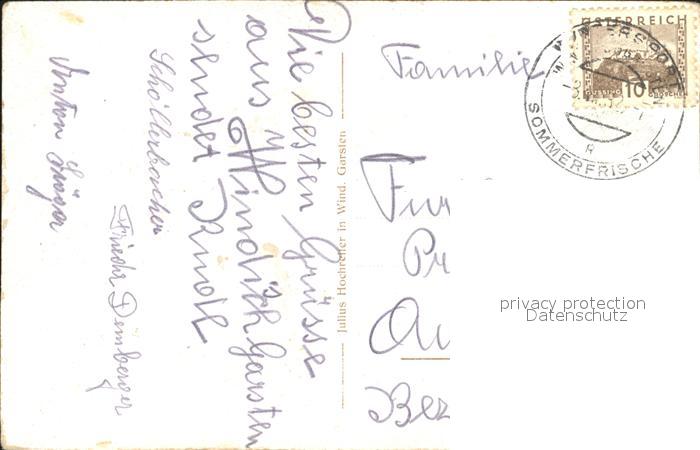 Die besten Grüsse
aus Windischgarsten
sendet Rudl
Schöllerbacher
Friedr Demberger
Anton
Julius Hochreiter in Wind. Garsten
Familie
Fur
Pr
Au
Bez
ÖSTERREICH
10
GÜSSING
GROSCHEN
SOMMERFRISCHE
privacy protection
Datenschutz